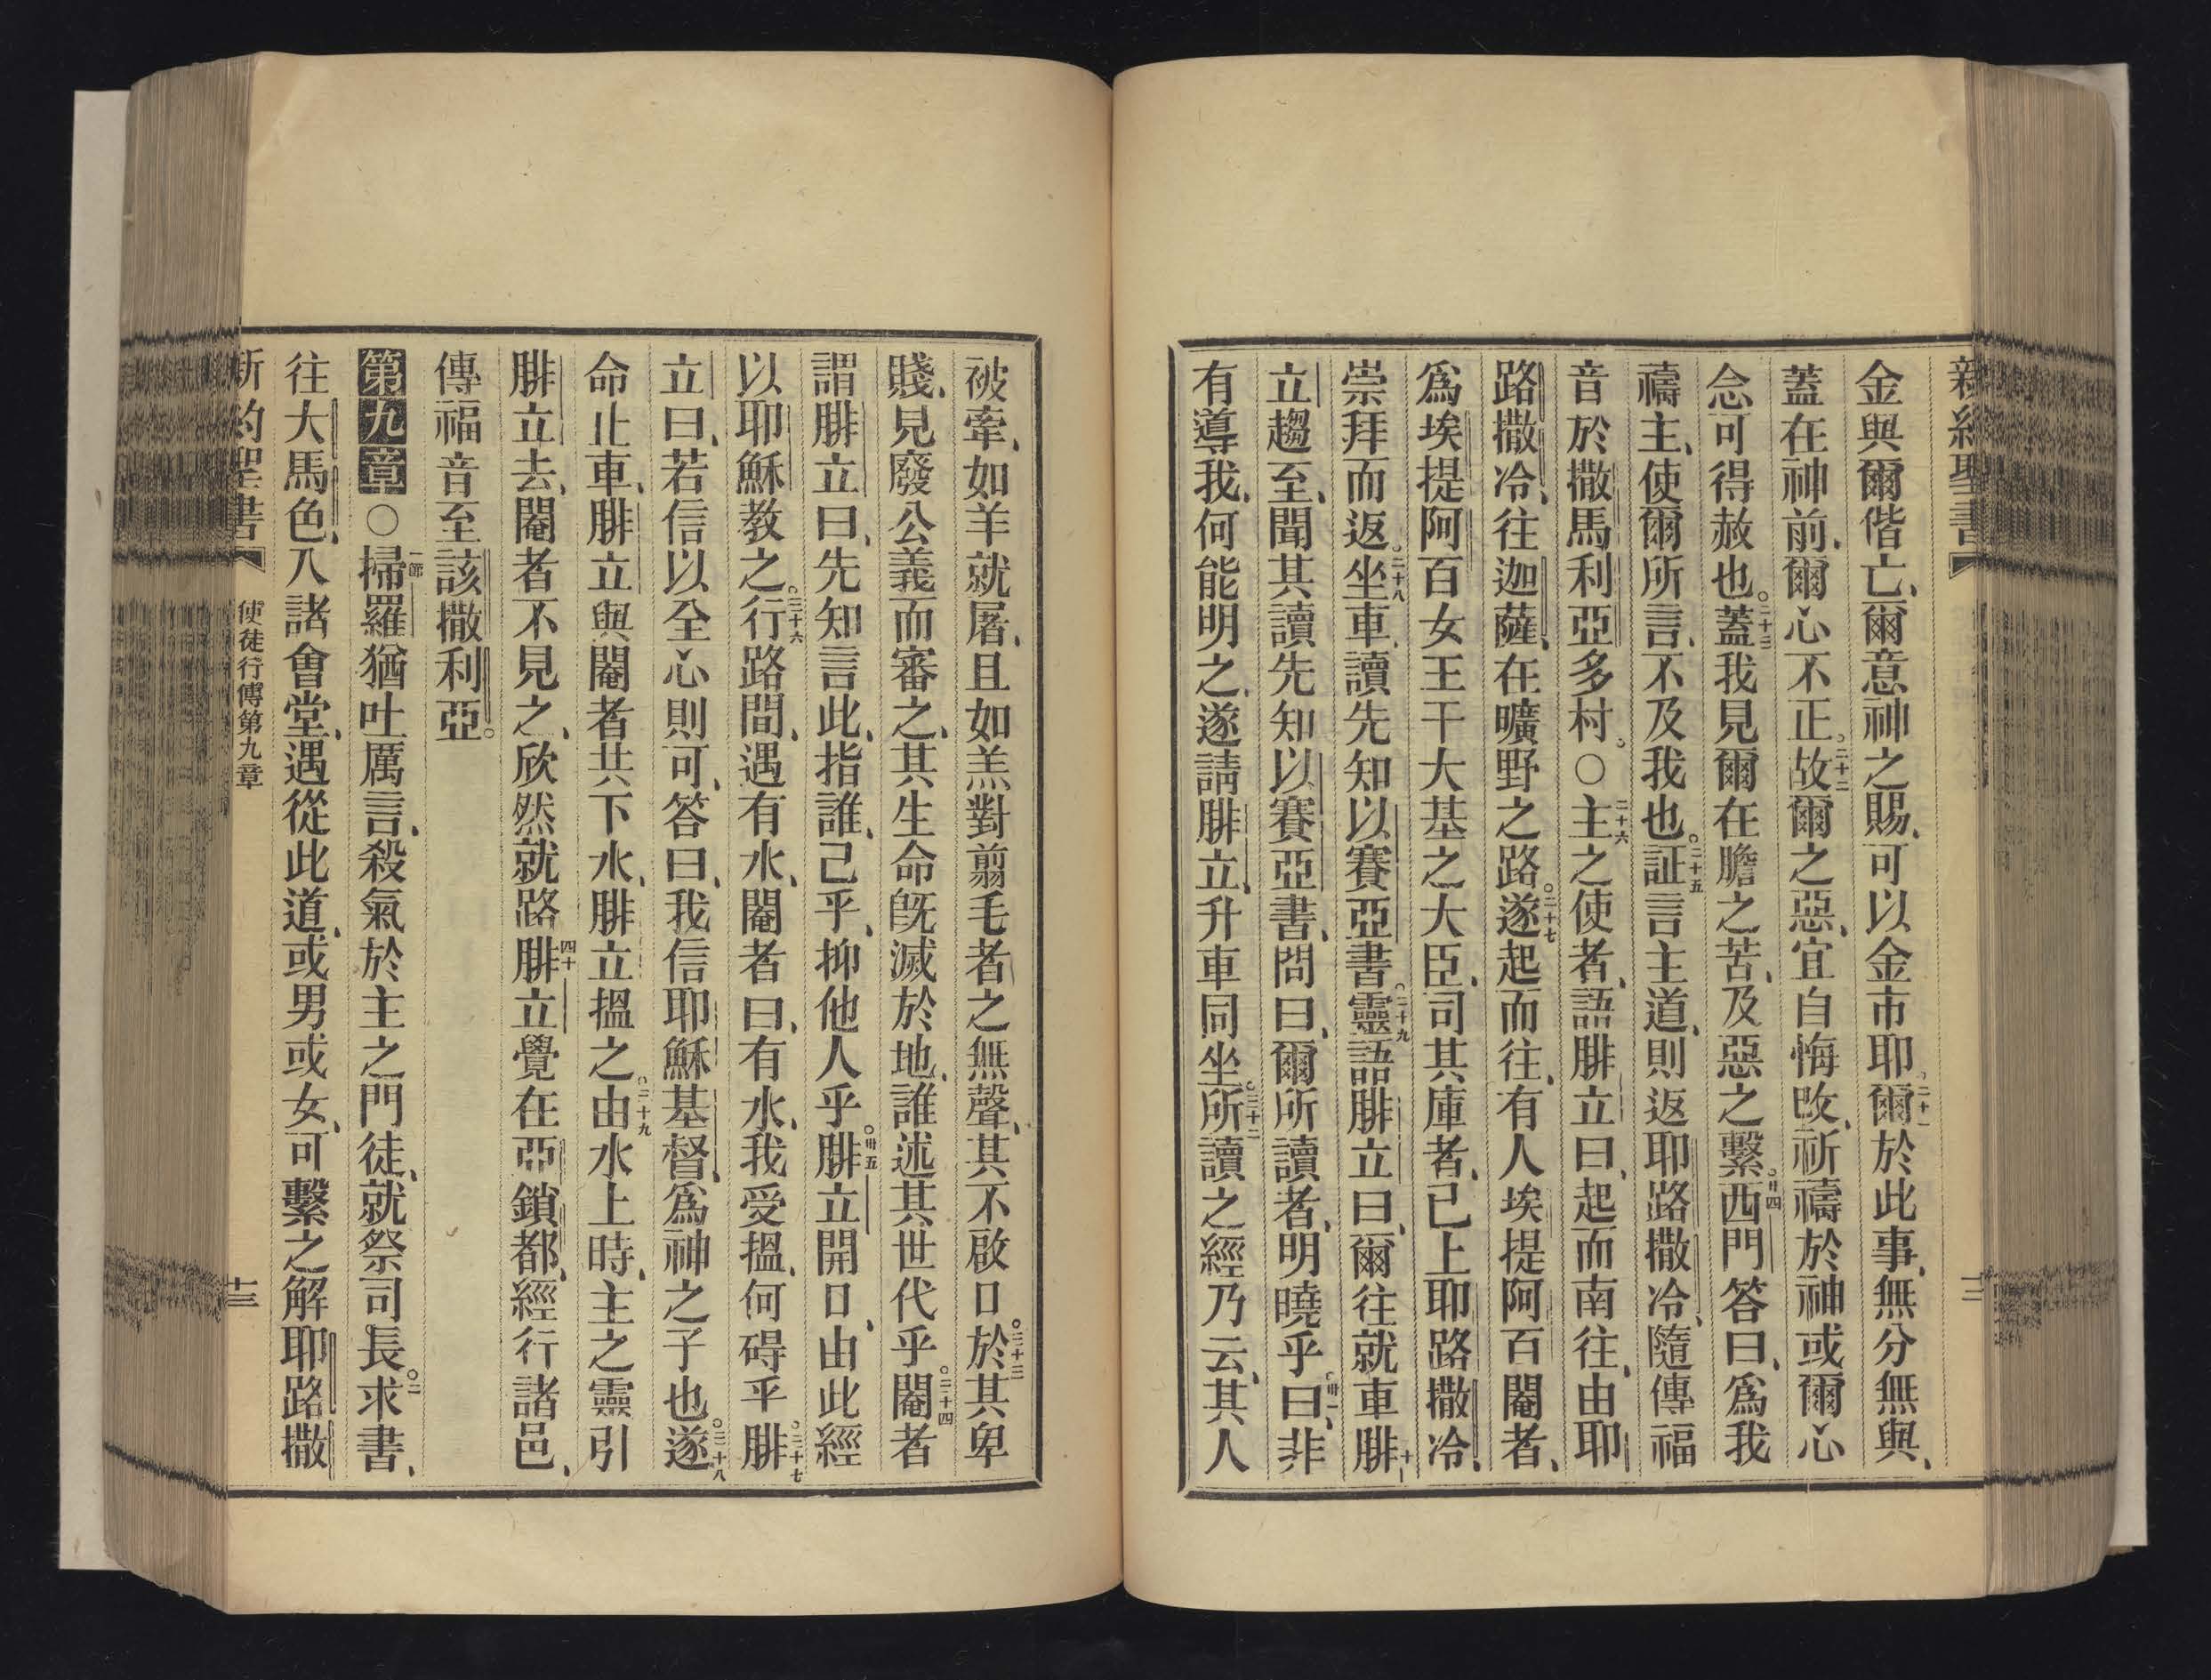 金與爾偕亡、爾意神之賜、可以金市耶。二十一爾於此事、無分無與、
蓋在神前、爾心不正。二十二故爾之惡、宜自悔改、祈禱於神或爾心
念可得赦也。二十三蓋我見爾在膽之苦、及惡之繫。廿四西門答曰、爲我
禱主、使爾所言、不及我也。二十五証言主道、則返耶路撒冷、隨傳福
音於撒馬利亞多村。○二十六主之使者、語腓立曰、起而南往、由耶
路撒冷、往迦薩、在曠野之路。二十七遂起而往、有人埃提阿百閹者、
爲埃提阿百女王干大基之大臣、司其庫者、已上耶路撒冷、
崇拜而返。二十八坐車、讀先知以賽亞書。二十九靈語腓立曰、爾往就車腓
立趨至、聞其讀先知以賽亞書、問曰、爾所讀者、明曉乎。卅一曰、非
有導我、何能明之、遂請腓立、升車同坐。三十二所讀之經乃云、其人
被牽、如羊就屠、且如羔對翦毛者之無聲、其不啟口。三十三於其卑
賤、見廢公義而審之、其生命旣滅於地、誰述其世代乎。三十四閹者
謂腓立曰、先知言此、指誰、己乎、抑他人乎。卅五腓立開口、由此經
以耶穌教之。三十六行路間、遇有水、閹者曰、有水、我受搵、何碍乎。三十七腓
立曰、若信以全心則可、答曰、我信耶穌基督、爲神之子也。三十八遂
命止車、腓立與閹者共下水、腓立搵之。三十九由水上時、主之靈引
腓立去、閹者不見之、欣然就路四十腓立覺在亞鎖都、經行諸邑、
傳福音至該撒利亞。
第九章○一節掃羅猶吐厲言、殺氣於主之門徒、就祭司長。二求書、
往大馬色、入諸會堂、遇從此道、或男或女、可繫之解耶路撒
新約聖書 使徒行傳第九章 十三